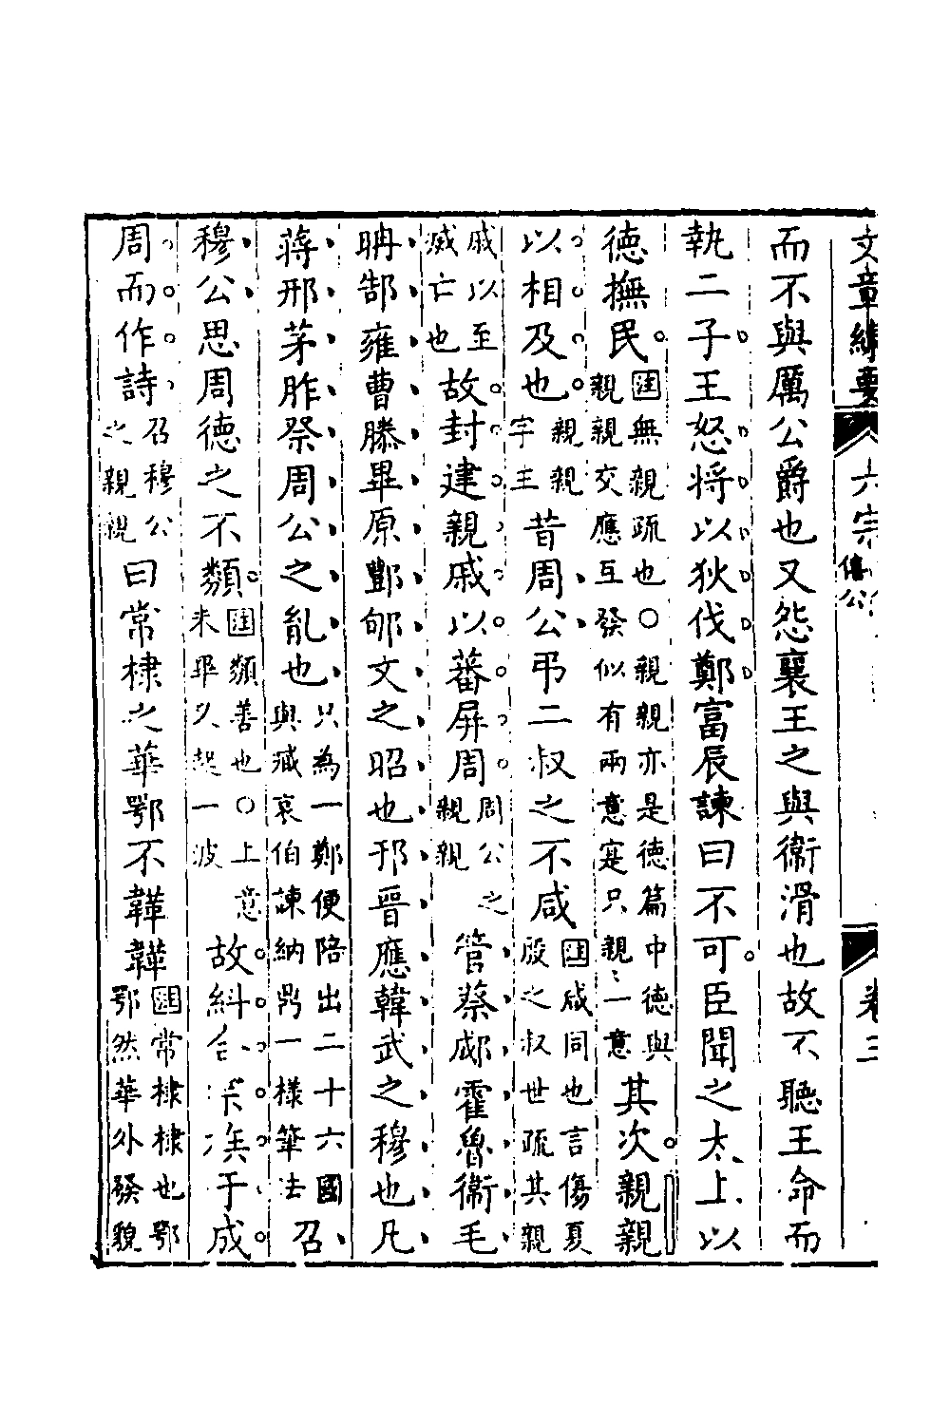 文章綱要 六宗 僖公 卷三
而不與厲公爵也又怨襄王之與衞滑也故不聽王命而
執二子王怒將以狄伐鄭富辰諫曰不可臣聞之太上以
德撫民註無親疏也○親親亦是德篇中德與親親交應互發似有兩意寔只親親一意其次親親
以相及也親親字主昔周公弔二叔之不咸註咸同也言傷夏殷之叔世疏其親
戚以至滅亡也故封建親戚以蕃屏周周公之親親管蔡郕霍魯衞毛
聃郜雍曹滕畢原酆郇文之昭也邘晉應韓武之穆也凡
蔣邢茅胙祭周公之胤也只為一鄭便陪出二十六國與臧哀伯諫納鼎一樣筆法召
穆公思周德之不類註類善也○上意未畢又起一波故糾合宗族于成
周而作詩召穆公之親親曰常棣之華鄂不韡韡註常棣棣也鄂鄂然華外發貌